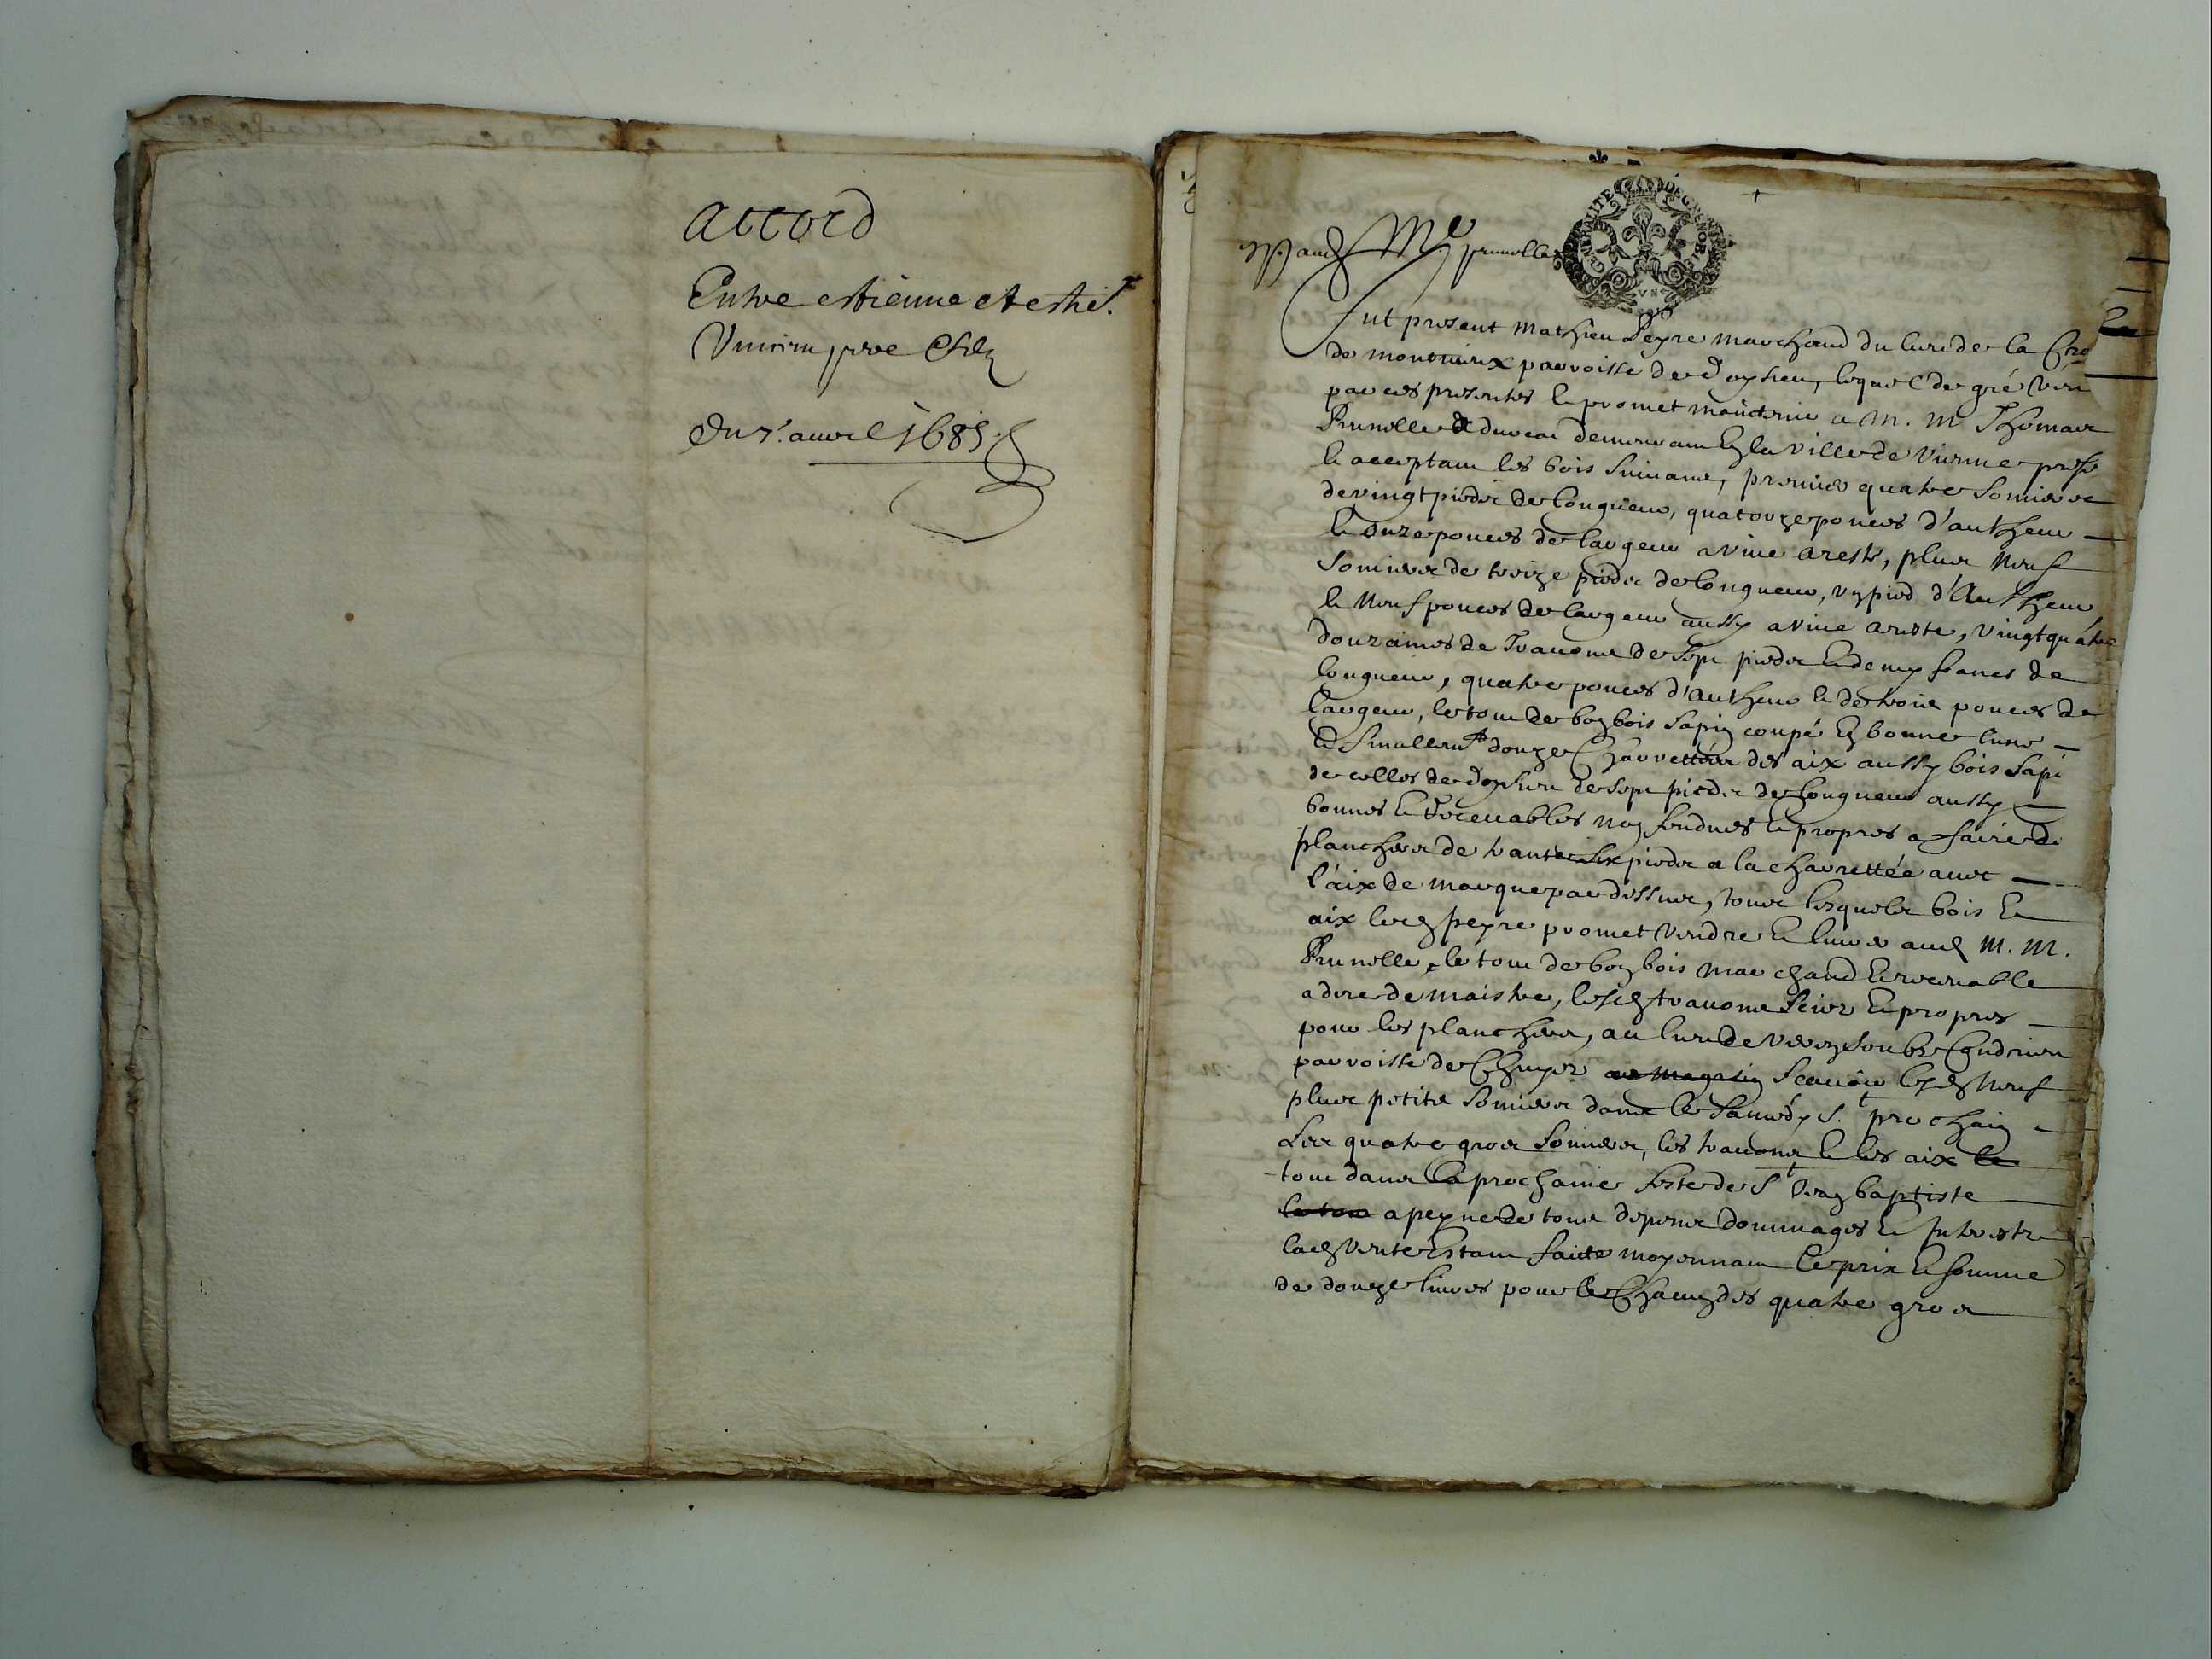 accord
Entre estienne et
pere
Du 7. auril 1685
GENERALITE DE GRENOBLE
VN
Mr prunelle
Fut present mathieu Peyre marchand du lieu de la
de parroisse de Doysieu, lequel de gré
par ces presentes et promet maintenir a M. M Thomas
Prunelle demeurant en la ville de Vienne
et acceptant les bois suiuants, premier quatre somiers
de vingt pieds de longueur, quatorze pouces d'autheur
et onze pouces de largeur a viue areste, plus neuf
somiers de treize pieds de longueur, vn pied d'autheur
et neuf pouces de largeur aussy a viue areste, vingt quatre
douzaines de trauons de sept pieds et demy francs de
longueur, quatre pouces d'autheur et de trois pouces de
largeur, le tout de bon bois sapin coupé en bonne lune
et finallemt douze charrettées des aix aussy bois sapin
de celles de Doysieu de sept pieds de longueur aussy
bonnes et receuables non fendues et propres a faire de
planchers de trante six pieds a la charrettée auec
l'aix de marque par dessus, tous lesquels bois et
aix led peyre promet vendre et liurer aud M. M.
Prunelle, le tout de bon bois marchand et receuable
a dire de maistre, lesd trauons et propres
pour les planchers, au lieu de Verin soubs Condrieu
parroisse de Chuyer au magasin scauoir lesd neuf
plus petits somiers dans le samedy St prochain
Les quatre gros somiers, les trauons et les aix le
tout dans la prochaine feste de St Jean baptiste
le tout a peyne de tous depens dommages et interests
lad vente estant faitte moyennant le prix et somme
de douze liures pour le chacun des quatre gros